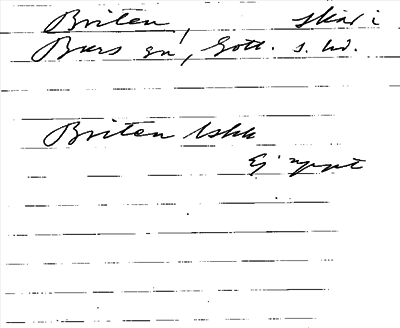 Briten, skär i
Burs sn, Gotl. s. hd.
Briten
Ej uppt